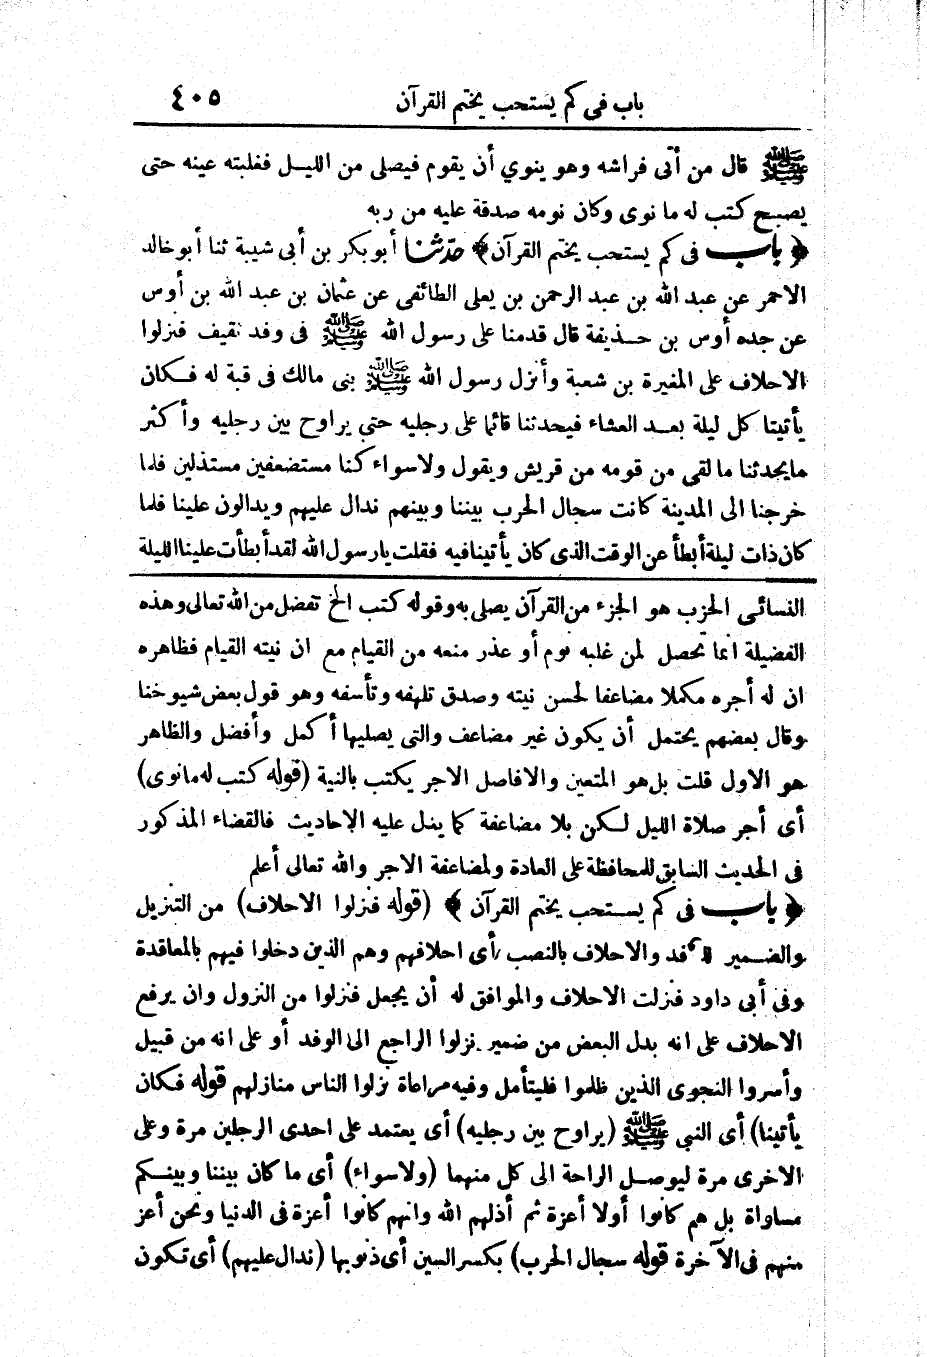 باب فى كم يستحب يختم القرآن ٤٠٥
ﷺ قال من أتى فراشه وهو ينوي أن يقوم فيصلى من الليل فغلبته عينه حتى
يصبح كتب له ما نوى وكان نومه صدقة عليه من ربه
﴿ باب فى كم يستحب يختم القرآن﴾ حدّثنا أبو بكر بن أبى شيبة ثنا أبو خالد
الاحمر عن عبد الله بن عبد الرحمن بن يعلى الطائفى عن عثمان بن عبد الله بن أوس
عن جده أوس بن حذيفة قال قدمنا على رسول الله ﷺ فى وفد ثقيف فنزلوا
الاحلاف على المغيرة بن شعبة وأنزل رسول الله ﷺ بنى مالك فى قبة له فكان
يأتينا كل ليلة بعد العشاء فيحدثنا قائما على رجليه حتى يراوح بين رجليه وأكثر
ما يحدثنا ما لقى من قومه من قريش ويقول ولاسواء كنا مستضعفين مستذلين فلما
خرجنا الى المدينة كانت سجال الحرب بيننا وبينهم ندال عليهم ويدالون علينا فلما
كان ذات ليلة أبطأ عن الوقت الذى كان يأتينا فيه فقلت يا رسول الله لقد أبطأت علينا الليلة
النسائى الحزب هو الجزء من القرآن يصلى به وقوله كتب الخ تفضل من الله تعالى وهذه
الفضيلة انما تحصل لمن غلبه نوم أو عذر منعه من القيام مع ان نيته القيام فظاهره
ان له أجره مكملا مضاعفا لحسن نيته وصدق تلهفه وتأسفه وهو قول بعض شيوخنا
وقال بعضهم يحتمل أن يكون غير مضاعف والتى يصليها أكمل وأفضل والظاهر
هو الاول قلت بل هو المتعين والافاصل الاجر يكتب بالنية (قوله كتب له مانوى)
أى أجر صلاة الليل لكن بلا مضاعفة كما يدل عليه الاحاديث فالقضاء المذكور
فى الحديث السابق للمحافظة على العادة ولمضاعفة الاجر والله تعالى أعلم
﴿ باب فى كم يستحب يختم القرآن ﴾ (قوله فنزلوا الاحلاف) من التنزيل
والضمير للوفد والاحلاف بالنصب أى احلافهم وهم الذين دخلوا فيهم بالمعاقدة
وفى أبى داود فنزلت الاحلاف والموافق له أن يجعل فنزلوا من النزول وان يرفع
الاحلاف على انه بدل البعض من ضمير نزلوا الراجع الى الوفد أو على انه من قبيل
وأسروا النجوى الذين ظلموا فليتأمل وفيه مراعاة نزلوا الناس منازلهم قوله فكان
يأتينا) أى النبي ﷺ (يراوح بين رجليه) أى يعتمد على احدى الرجلين مرة وعلى
الاخرى مرة ليوصل الراحة الى كل منهما (ولاسواء) أى ما كان بيننا وبينكم
مساواة بل هم كانوا أولا أعزة ثم أذلهم الله وانهم كانوا أعزة فى الدنيا ونحن أعز
منهم فى الآخرة قوله سجال الحرب) بكسر السين أى ذنوبها (ندال عليهم) أى تكون